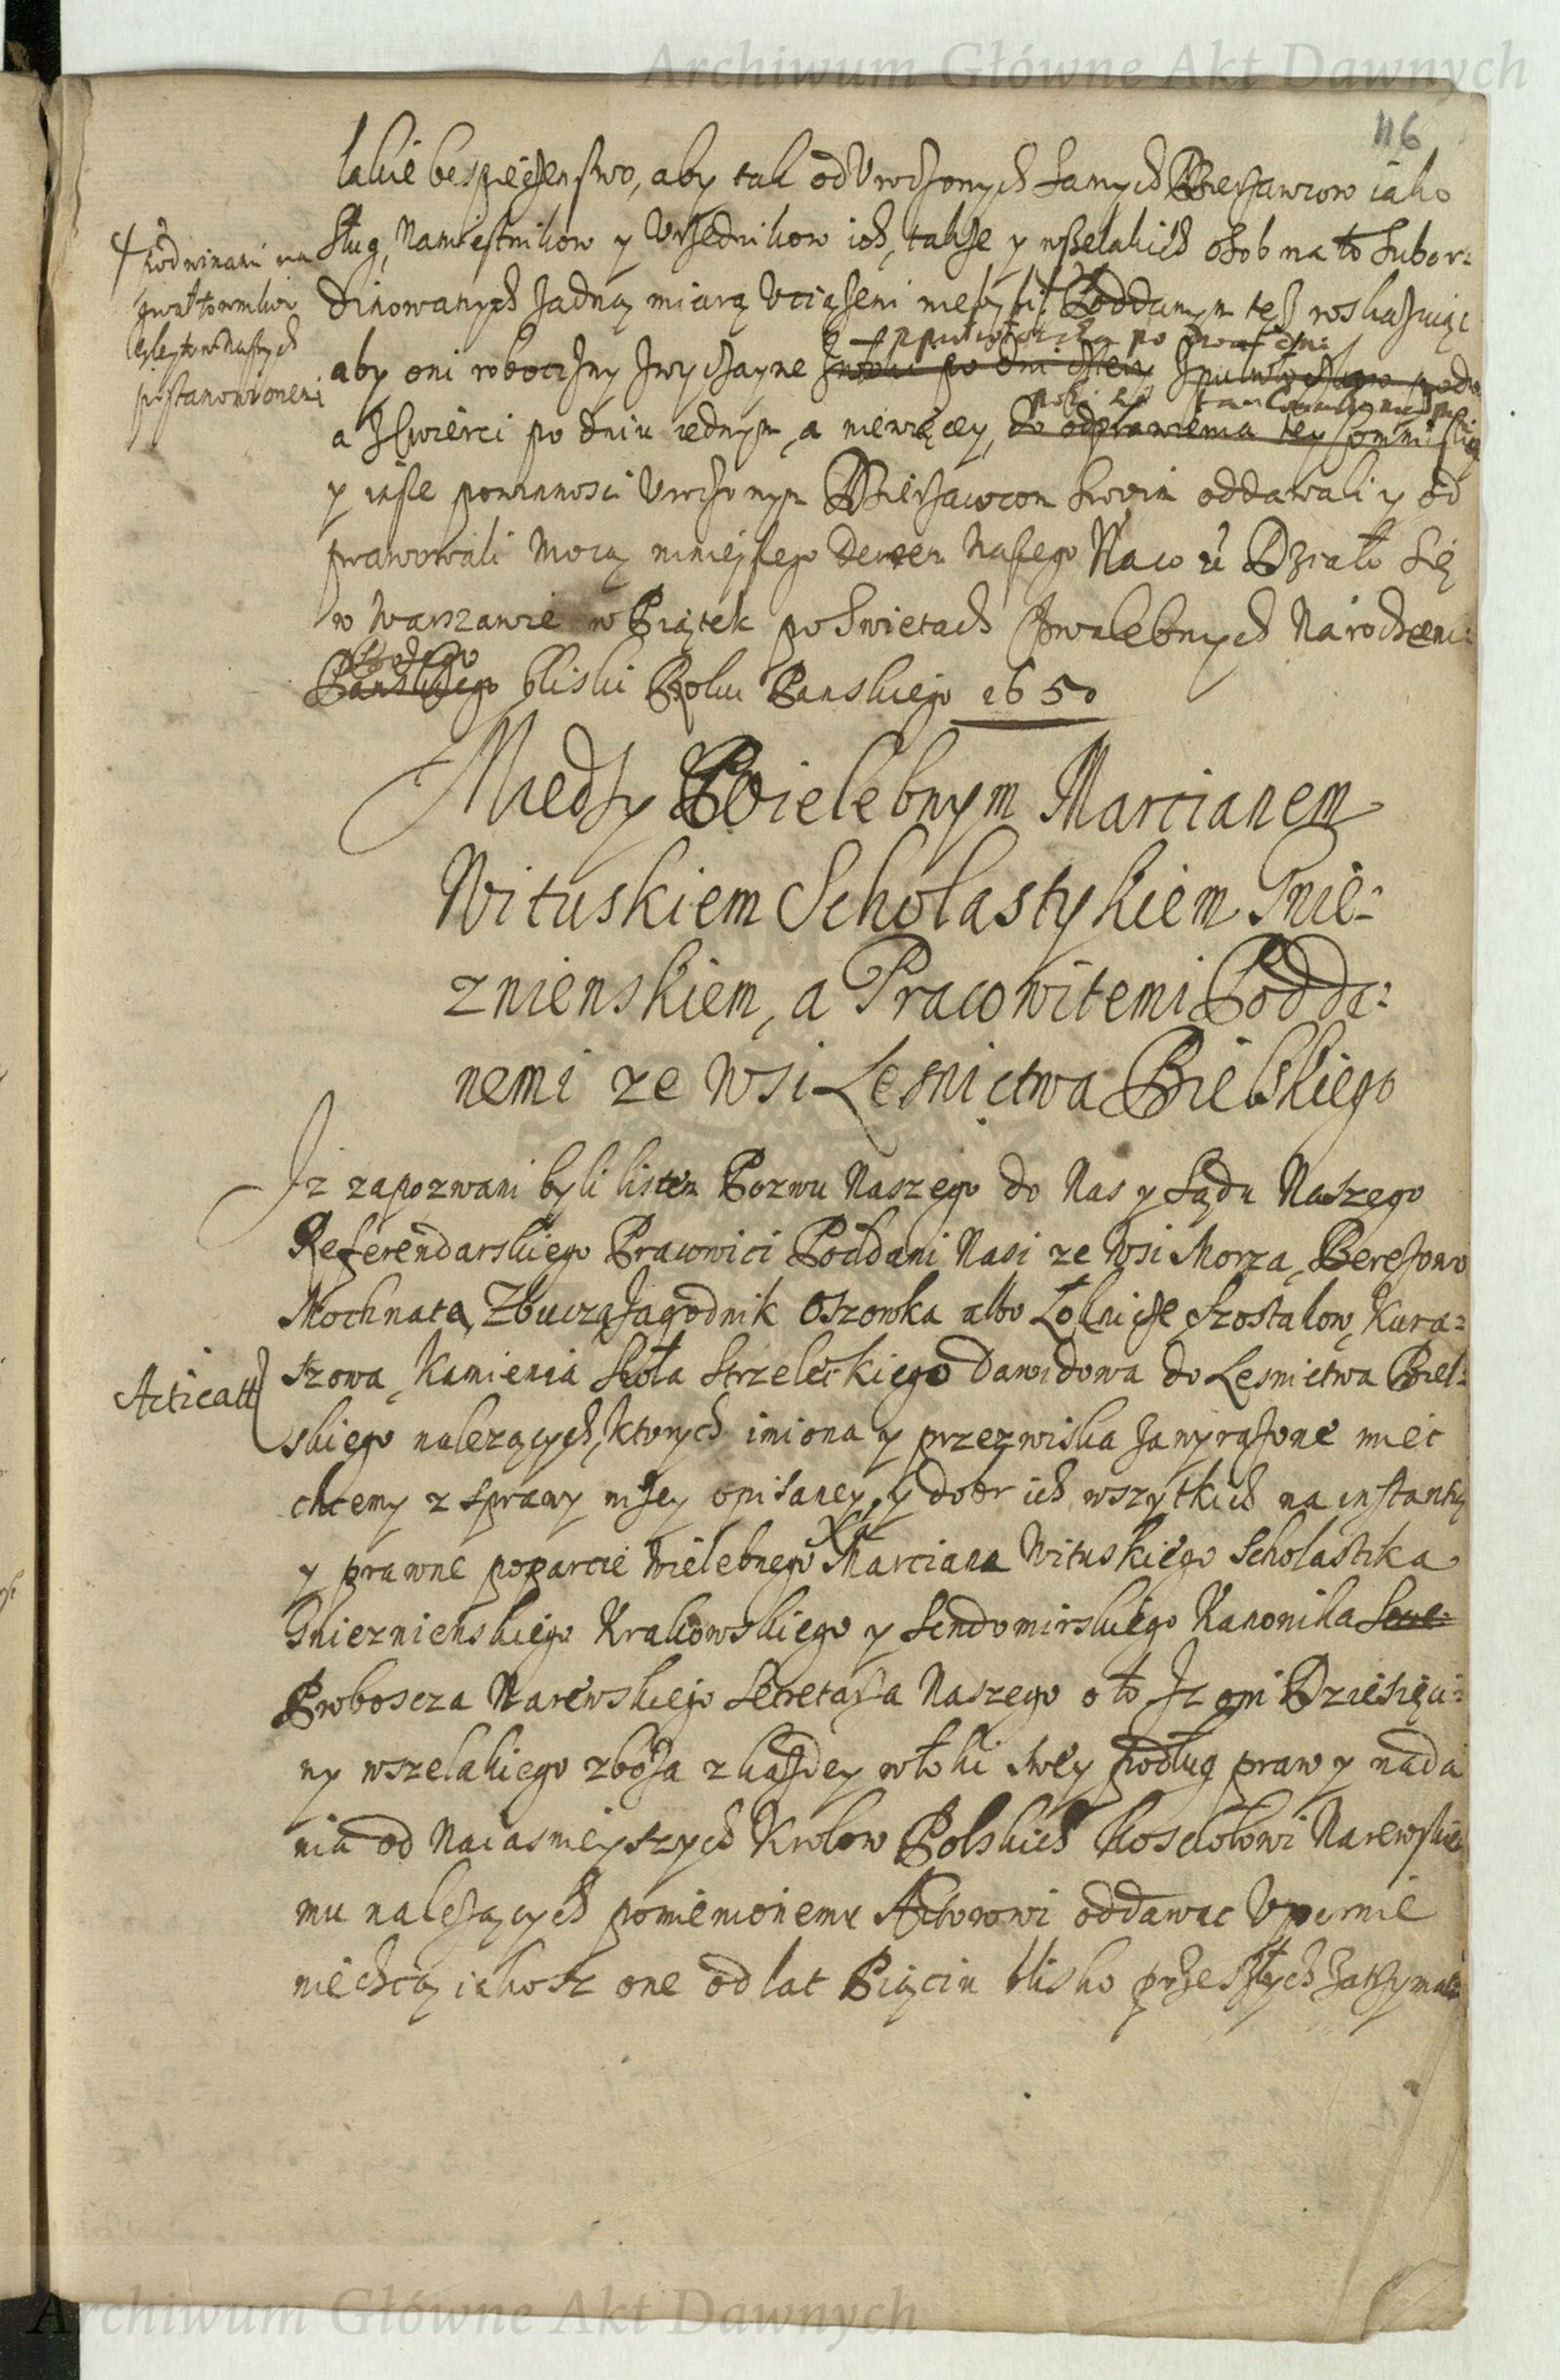 Archiwum Główne Akt Dawnych
116
lakie bespieczenstwo, aby tak od Vrodzonych samych Dzierzawcow iako
Sług, Namiestnikow y Vrzednikow ich, takze y wszelakich osob na to subor:
dinowanych zadną miarą vciązeni nie byli. Poddanym tesz roskazuiąc
aby oni roboczny zwyczayne
z włoki po dni cztery z pułwłoczka po dw
a z cwierci po dniu iednym, a niewięcey, do odprawienia tey Commissiey
y insze powinnosci Vrodzonym Dzierzawcom swoim oddawali y od
prawowali mocą ninieyszego decretu naszego Na co &c Działo się
w Warszawie w Piątek po Swietach Chwalebnych Narodzenia
Bozego
Panskiego bliski Roku Panskiego 1650
postanowionemi
Miedzy Wielebnym Marcianem
Wituskiem Scholastykiem Gnie:
znienskiem, a Pracowitemi Podda:
nemi ze Wsi Lesnictwa Bielskiego
Iz zapozwani byli listem Pozwu Naszego do Nas y Sądu Naszego
Referendarskiego Pracowici Poddani Nasi ze Wsi Morza, Berezowo
Mochnata, Zbucza Jagodnik Oszowka albo Szostakow, Kura:
szowa, Kamienia Strzeleckiego Dawidowa do Lesnictwa Biel:
Acticatt
skiego nalezących, ktorych imiona y przezwiska za wyrazone miec
chcemy z sprawy nizey opisaney, y dobr ich wszytkich na instantią
y prawne poparcie Wielebnego Xa Marciana Wituskiego Scholastika
Gniezninskiego Krakowskiego y Sendomirskiego Kanonika Secre:
Proboscza Narewskiego Secretarza Naszego o to Iz oni Dziesięci:
ny wszelakiego zboza z kazdey włoki swey podług praw y nada
nia od Naiasnieyszych Krolow Polskich kosciołowi Narewskie
mu nalezących pomienionemu Actorowi oddawac vpornie
niechcą iakosz one od lat Pięciu blisko przeszłych zatrzymali
Archiwum Główne Akt Dawnych